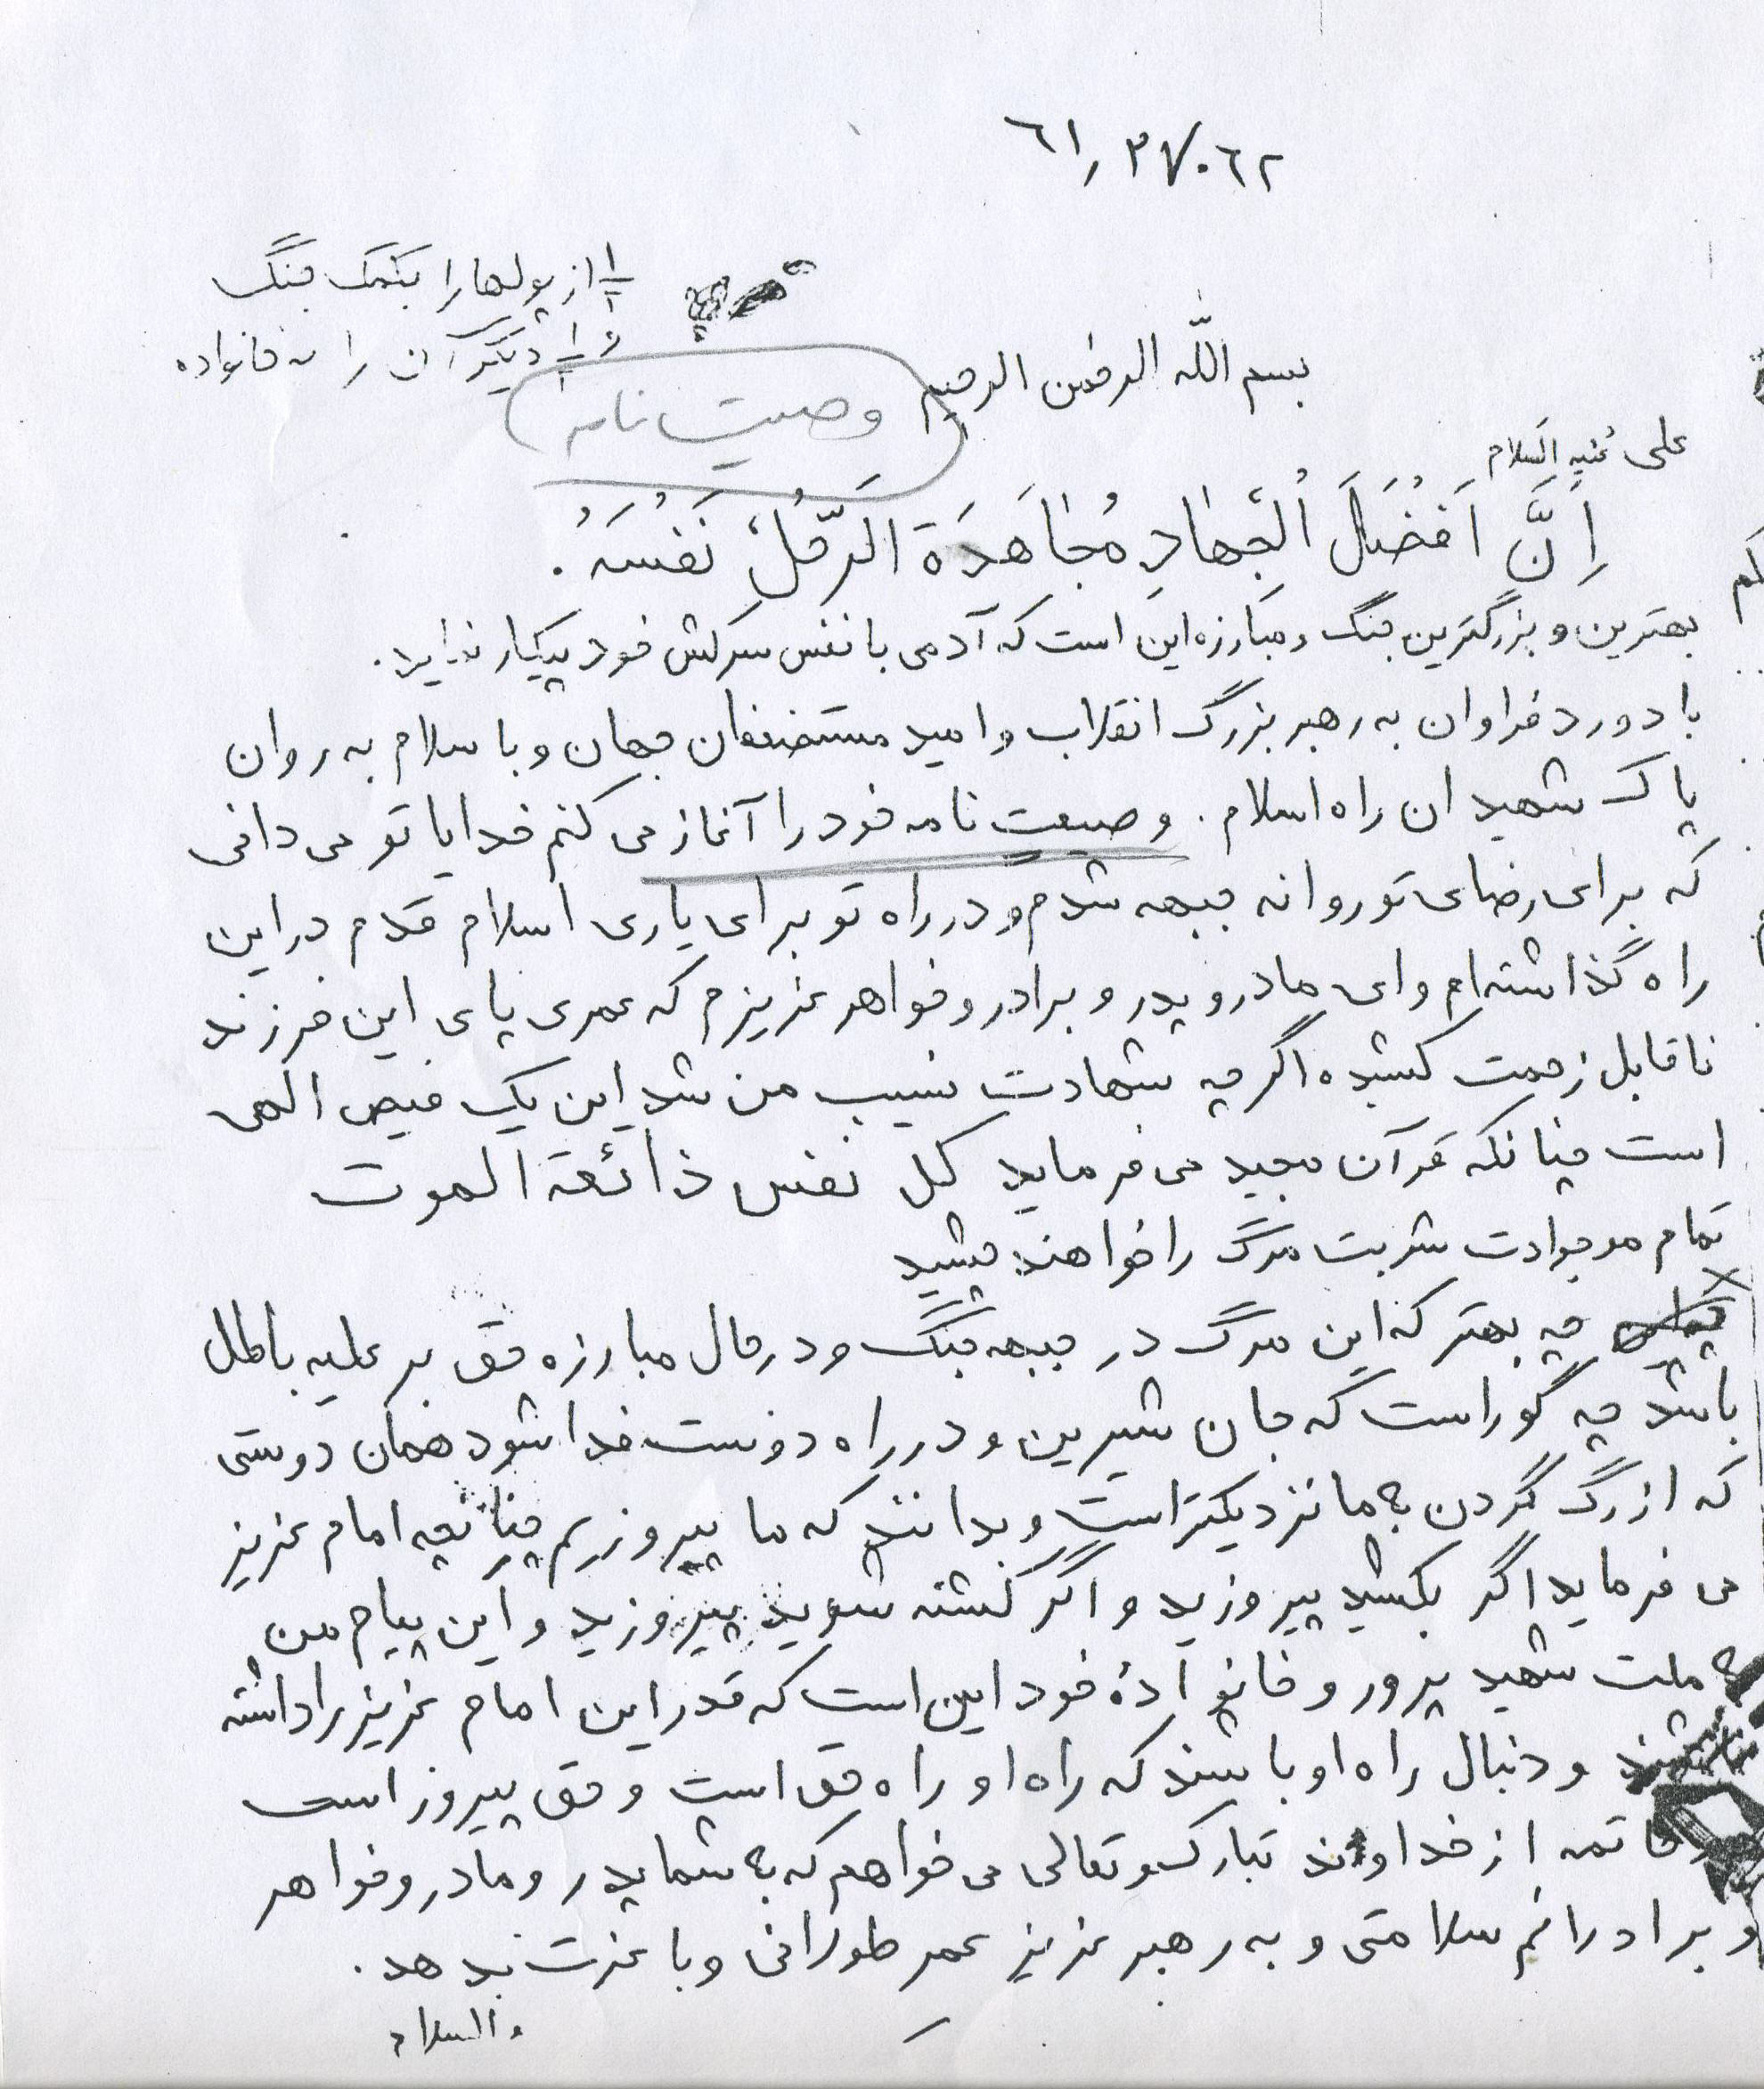 ٦١٫٣٧٠٦٢
از پولها را بکمک جنگ
و دیگر آن را به خانواده
بسم الله الرحمن الرحیم
وصیت نامه
علی علیه السلام
اِنَّ اَفْضَلَ الْجِهادِ مُجاهَدَة اَلرَّجُلُ نَفْسَهُ.
بهترین و بزرگترین جنگ و مبارزه این است که آدمی با نفس سرکش خود پیکار نماید.
با دورد فراوان به رهبر بزرگ انقلاب و امید مستضعفان جهان و با سلام به روان
پاک شهیدان راه اسلام. وصیت نامه خود را آغاز می کنم خدایا تو می دانی
که برای رضای تو روانه جبهه شدم و در راه تو برای یاری اسلام قدم در این
راه گذاشته ام و ای مادر و پدر و برادر و خواهر عزیزم که عمری پای این فرزند
ناقابل زحمت کشیده اگر چه شهادت نسیب من شد این یک فیض الهی
است چنانکه قرآن مجید می فرماید کل نفس ذائقة الموت
تمام موجوادت شربت مرگ را خواهند چشید
چه بهتر که این مرگ در جبهه جنگ و در حال مبارزه حق بر علیه باطل
باشد چه گوراست که جان شیرین و در راه دوست فدا شود همان دوستی
که از رگ گردن به ما نزدیکتر است و بدانند که ما پیروزیم چنانچه امام عزیز
می فرماید اگر بکشید پیروزید و اگر کشته شوید پیروزید و این پیام من
به ملت شهید پرور و خانوادهٔ خود این است که قدر این امام عزیز را داشته
باشند و دنبال راه او باشند که راه او راه حق است و حق پیروز است
خاتمه از خداوند تبارک و تعالی می خواهم که به شما پدر و مادر و خواهر
و برادرانم سلامتی و به رهبر عزیز عمر طولانی و با عزت بدهد.
والسلام